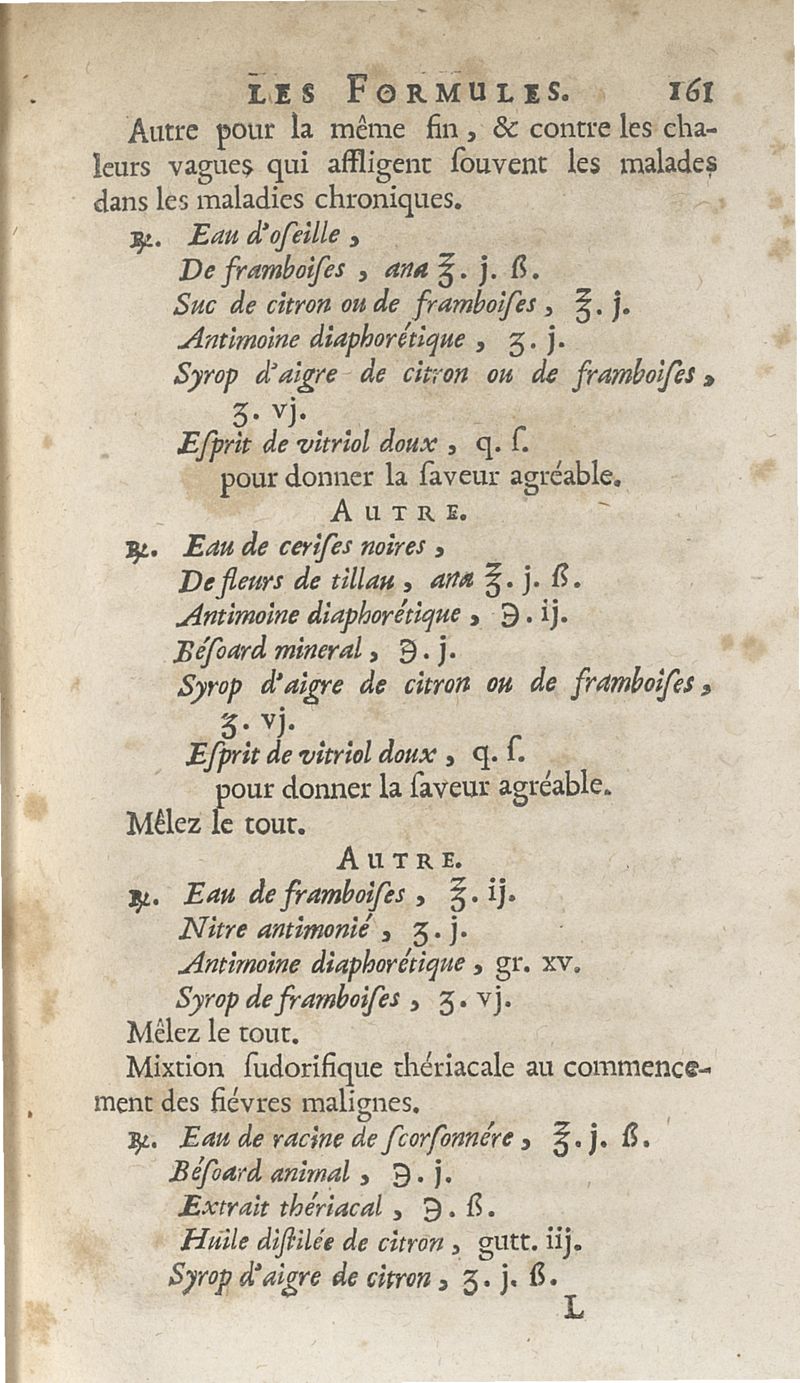 LES FORMULES. 161
Autre pour la même fin, & contre les cha-
leurs vagues qui affligent ſouvent les malades
dans les maladies chroniques.
℞. Eau d'oſeille,
De framboiſes, ana ℥. j. ß.
Suc de citron ou de framboiſes, ℥. j.
Antimoine diaphorétique, ʒ. j.
Syrop d'aigre de citron ou de framboiſes,
ʒ. vj.
Eſprit de vitriol doux, q. ſ.
pour donner la ſaveur agréable.
AUTRE.
℞. Eau de ceriſes noires,
De fleurs de tillau, ana ℥. j. ß.
Antimoine diaphorétique, ℈. ij.
Béſoard mineral, ℈. j.
Syrop d'aigre de citron ou de framboiſes,
ʒ. vj.
Eſprit de vitriol doux, q. ſ.
pour donner la ſaveur agréable.
Mêlez le tout.
AUTRE.
℞. Eau de framboiſes, ℥. ij.
Nitre antimonié, ʒ. j.
Antimoine diaphorétique, gr. xv.
Syrop de framboiſes, ʒ. vj.
Mêlez le tout.
Mixtion ſudorifique thériacale au commence-
ment des fiévres malignes.
℞. Eau de racine de ſcorſonnére, ℥. j. ß.
Béſoard animal, ℈. j.
Extrait thériacal, ℈. ß.
Huile diſtilée de citron, gutt. iij.
Syrop d'aigre de citron, ʒ. j. ß.
L